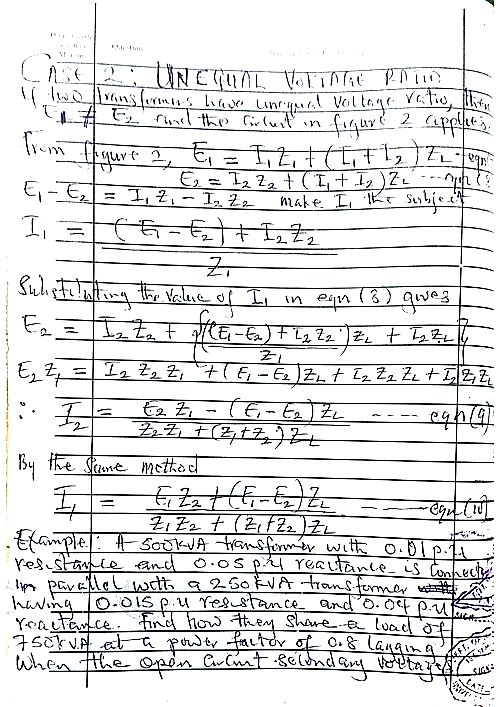 Question
CASE 2: UNEQUAL VOLTAGE RATIO
If two transformers have unequal voltage ratio, then
E₁ ≠ E₂ and the circuit in figure 2 applies.
From figure 2, E₁ = I₁Z₁ + (I₁ + I₂) ZL --- eqn
E₂ = I₂Z₂ + (I₁ + I₂) ZL ---- eqn (8
E₁ - E₂ = I₁Z₁ - I₂Z₂ make I₁ the subject
I₁ = (E₁ - E₂) + I₂Z₂ / Z₁
Substituting the value of I₁ in eqn (8) gives
E₂ = I₂Z₂ + {((E₁-E₂) + I₂Z₂ / Z₁) ZL + I₂ZL}
E₂Z₁ = I₂Z₂Z₁ + (E₁-E₂)ZL + I₂Z₂ZL + I₂Z₁ZL
∴ I₂ = E₂Z₁ - (E₁-E₂)ZL / Z₂Z₁ + (Z₁+Z₂)ZL ---- eqn (9)
By the same method
I₁ = E₁Z₂ + (E₁-E₂)ZL / Z₁Z₂ + (Z₁+Z₂)ZL ---- eqn (10)
Example: A 500KVA transformer with 0.01 p.u
resistance and 0.05 p.u reactance is connected
in parallel with a 250KVA transformer
having 0.015 p.u resistance and 0.04 p.u
reactance. Find how they share a load of
750KVA at a power factor of 0.8 lagging
when the open circuit secondary voltages